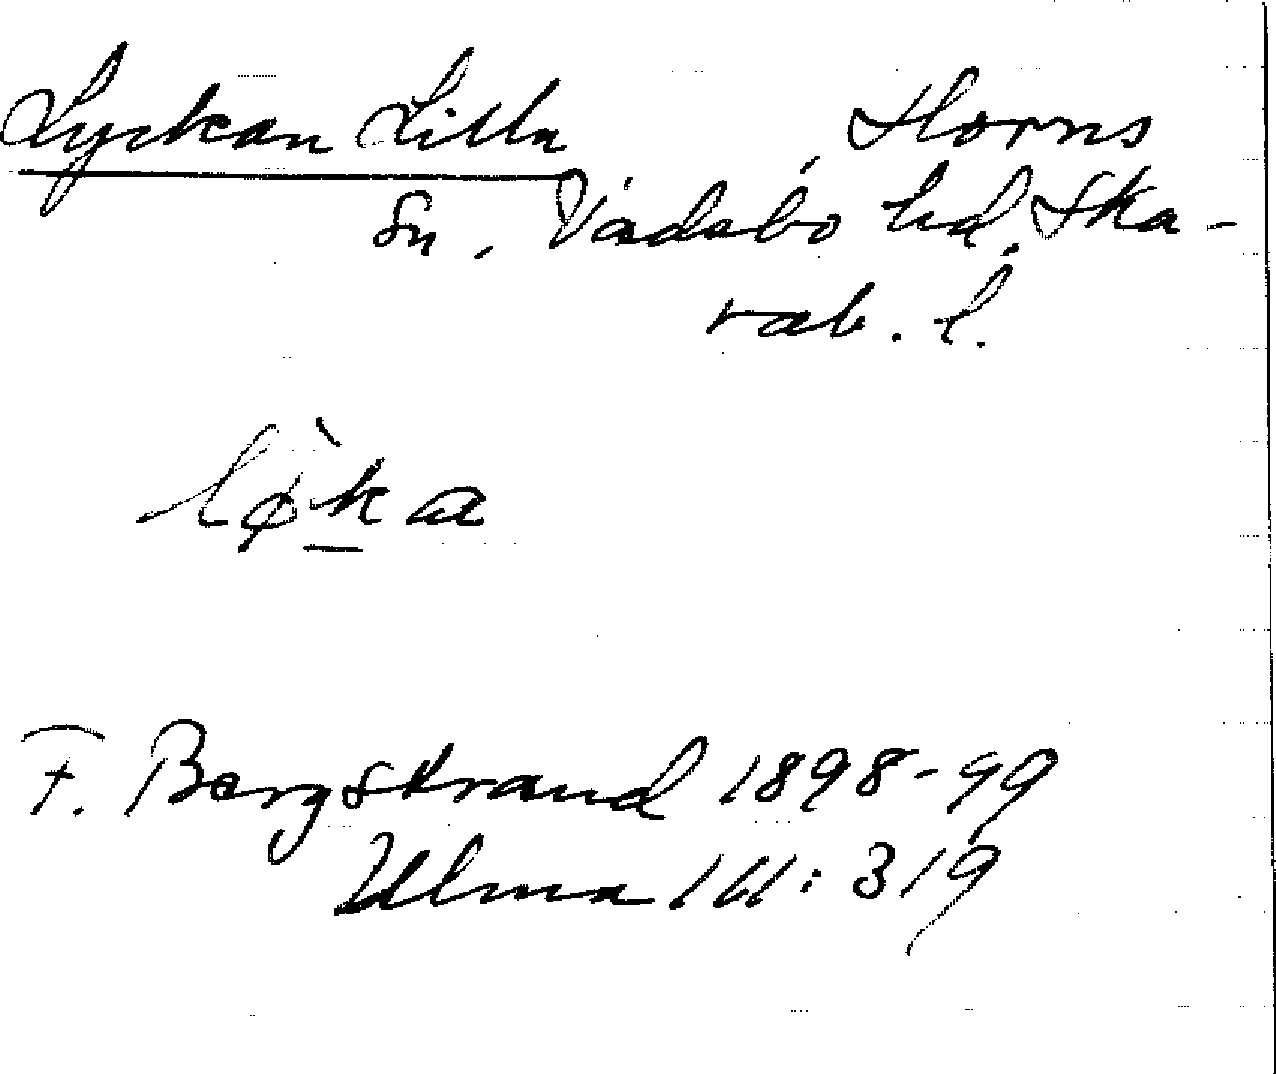 Lyckan Lilla, Horns
Sn, Vadsbo hd, Ska-
rab. l.
lø̀ka
F. Bergstrand 1898-99
Ulma 161: 319